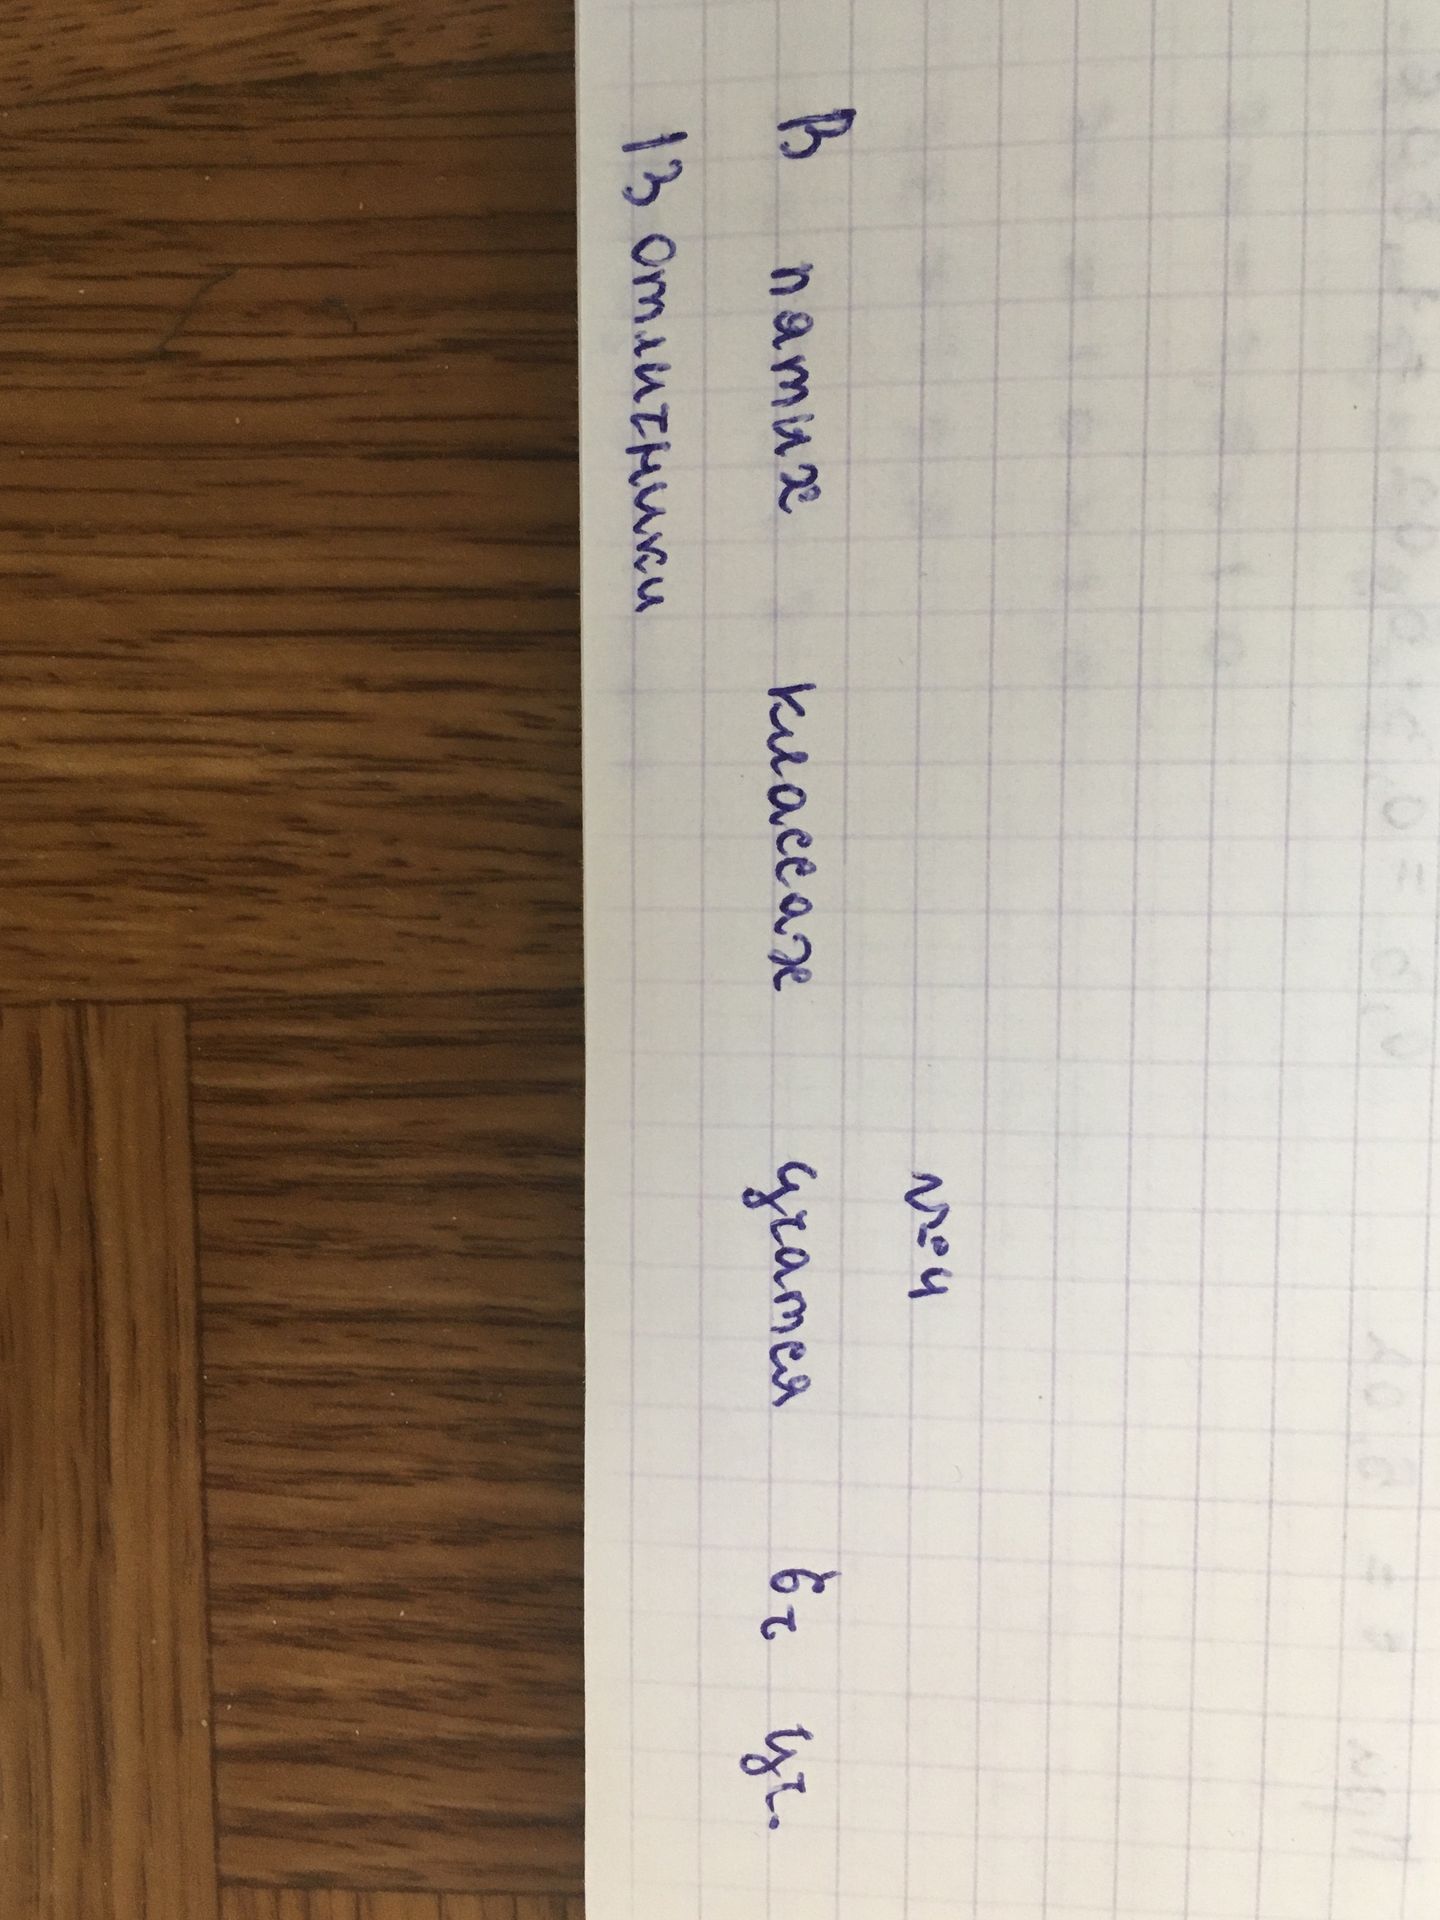 №4
В пятих классах учатся 6ч уч.
13 отличники